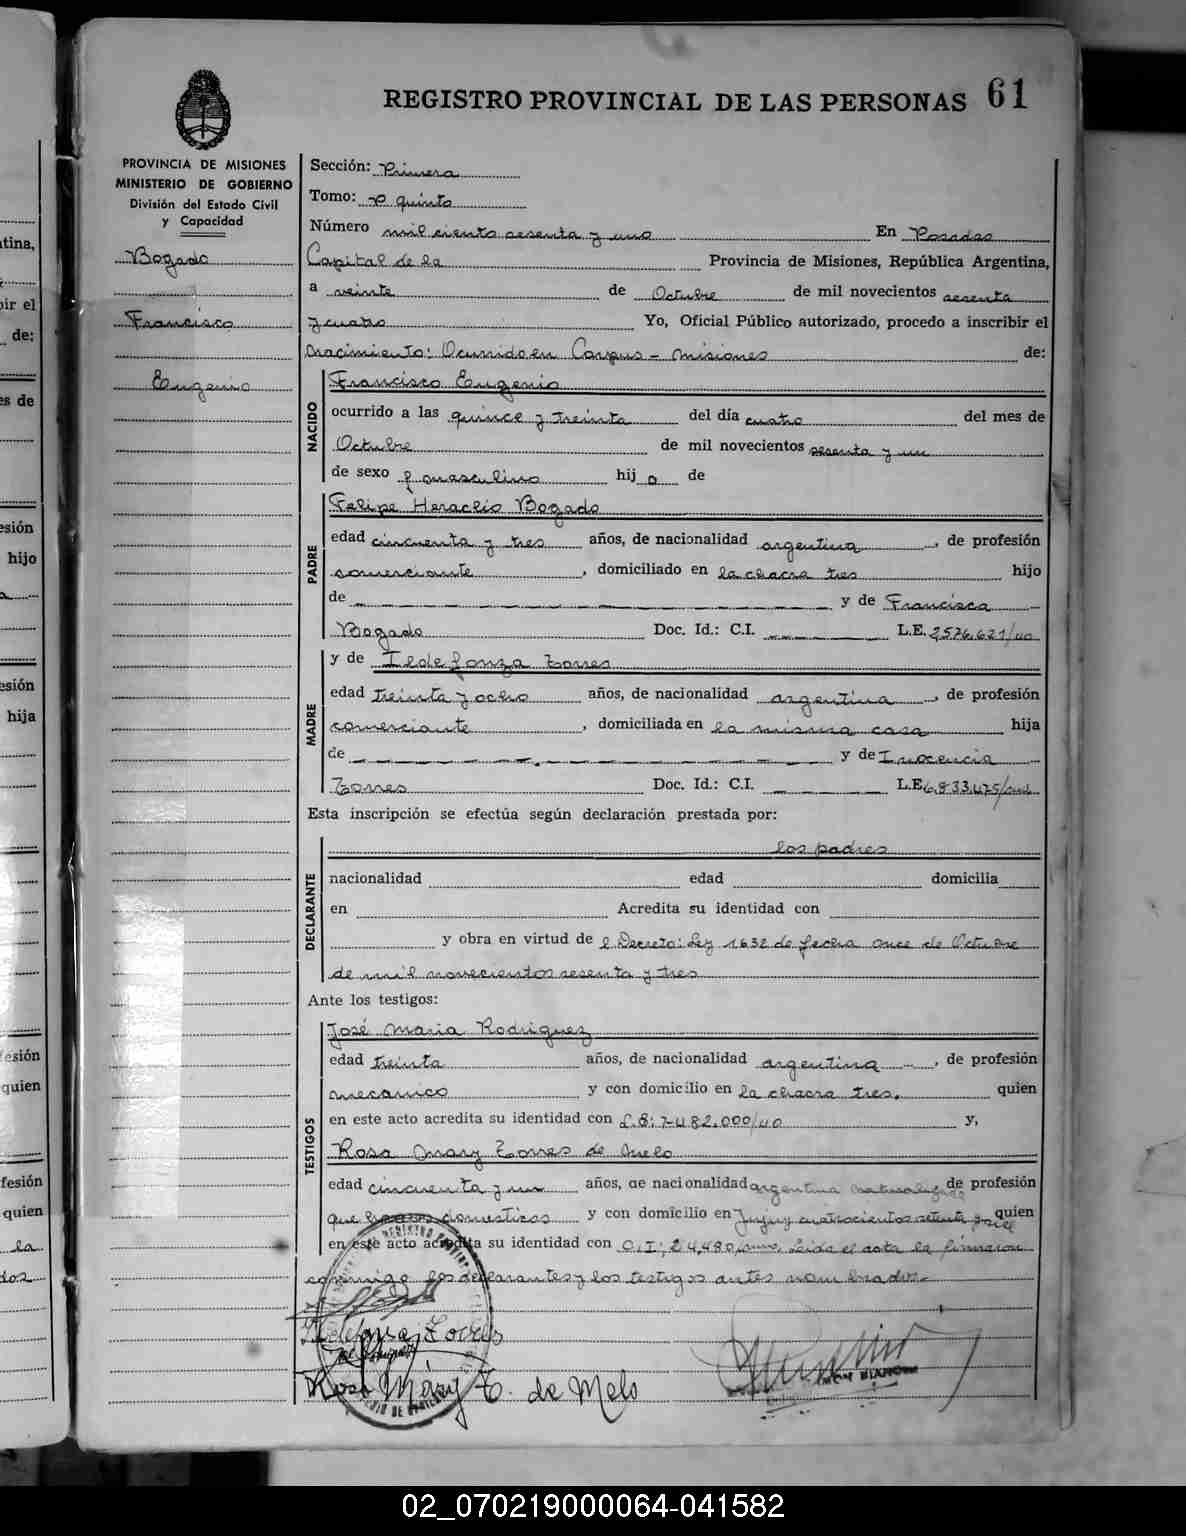 REGISTRO PROVINCIAL DE LAS PERSONAS 61
PROVINCIA DE MISIONES
MINISTERIO DE GOBIERNO
División del Estado Civil
y Capacidad
Bogado
Francisco
Eugenio
Sección: Primera
Tomo: quinto
Número mil ciento sesenta y uno En Posadas
Capital de la Provincia de Misiones, República Argentina,
a veinte de Octubre de mil novecientos sesenta
y cuatro Yo, Oficial Público autorizado, procedo a inscribir el
nacimiento: Ocurrido en Corpus - Misiones de:
NACIDO
Francisco Eugenio
ocurrido a las quince y treinta del día cuatro del mes de
Octubre de mil novecientos sesenta y un
de sexo masculino hijo de
PADRE
Felipe Heraclio Bogado
edad cincuenta y tres años, de nacionalidad argentina, de profesión
comerciante, domiciliado en la chacra tres hijo
de — — — y de Francisca
Bogado Doc. Id.: C.I. — — — L.E. 2576.621/40
MADRE
y de Ildefonza Torres
edad treinta y ocho años, de nacionalidad argentina, de profesión
comerciante, domiciliada en la misma casa hija
de — — — y de Inocencia
Torres Doc. Id.: C.I. — — — L.E. 6.833.475/
Esta inscripción se efectúa según declaración prestada por:
DECLARANTE
los padres
nacionalidad edad domicilia
en Acredita su identidad con
y obra en virtud de Decreto: Ley 1632 de fecha once de Octubre
de mil novecientos sesenta y tres
Ante los testigos:
TESTIGOS
José Maria Rodriguez
edad treinta años, de nacionalidad argentina, de profesión
mecanico y con domicilio en la chacra tres. quien
en este acto acredita su identidad con 7482.000/40 y,
Rosa Mary Torres de Melo
edad cincuenta y un años, de nacionalidad argentina naturalizada de profesión
que domesticos y con domicilio en Jujuy cuatrocientos setenta y siete quien
en este acto acredita su identidad con C.I: 24,480/ Leida el acta la firmaron
conmigo los declarantes y los testigos antes nombrados.-
Ildefonza Torres
Rosa Máry T. de Melo
02_070219000064-041582